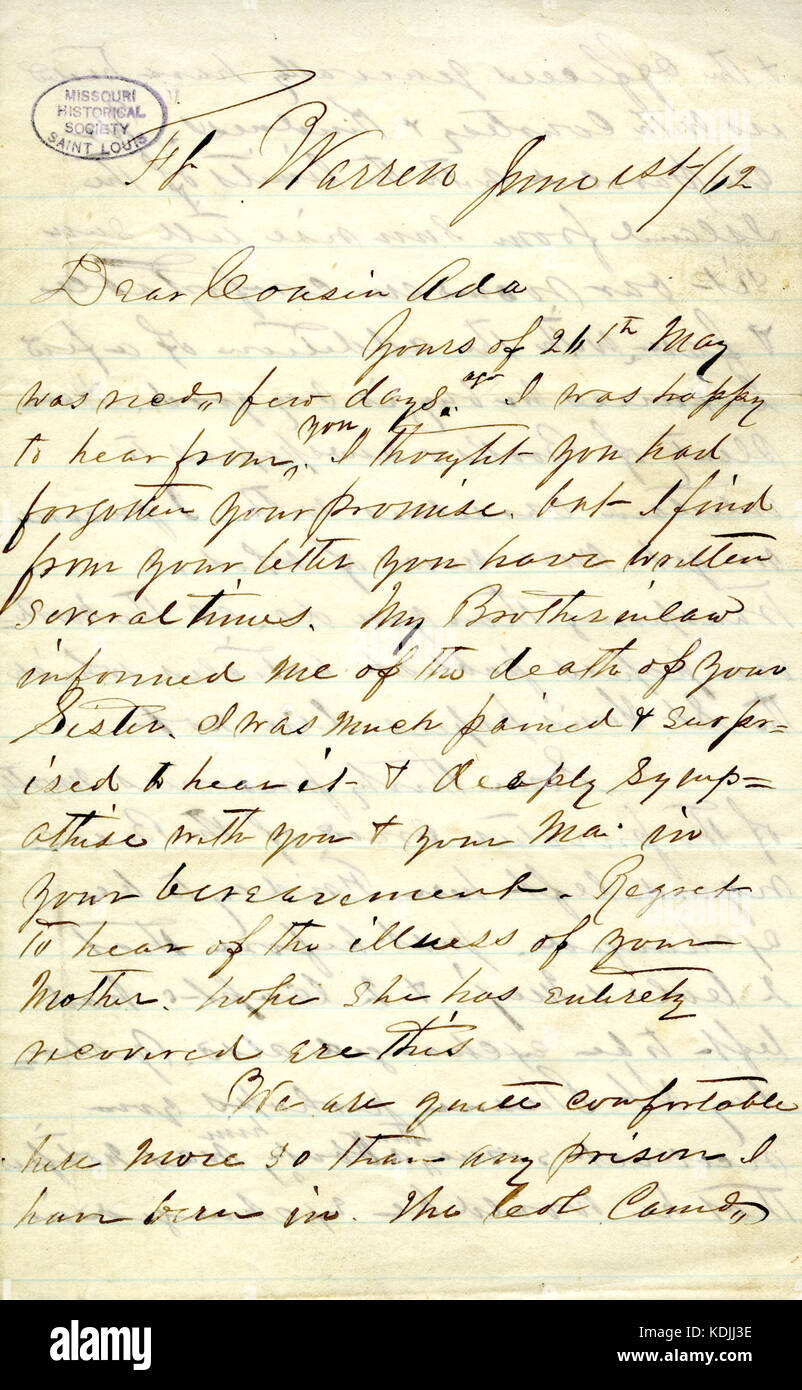 MISSOURI
HISTORICAL
SOCIETY
SAINT LOUIS
Ft. Warren June 1st/62
Dear Cousin Ada
Yours of 26th May
was recd,, few days ago. I was happy
to hear from you. I thought you had
forgotten your promise. but I find
from your letter you have written
several times. My Brother in law
informed me of the death of your
Sister. I was much pained & surpr=
ised to hear it & deeply symp=
athise with you & your Ma. in
your bereavement. Regret
to hear of the illness of your
Mother. hope she has entirely
recovered ere this
We are quite comfortable
here more so than any prison I
have been in. The Col Comd,,
alamy
Image ID: KDJJ3E
www.alamy.com